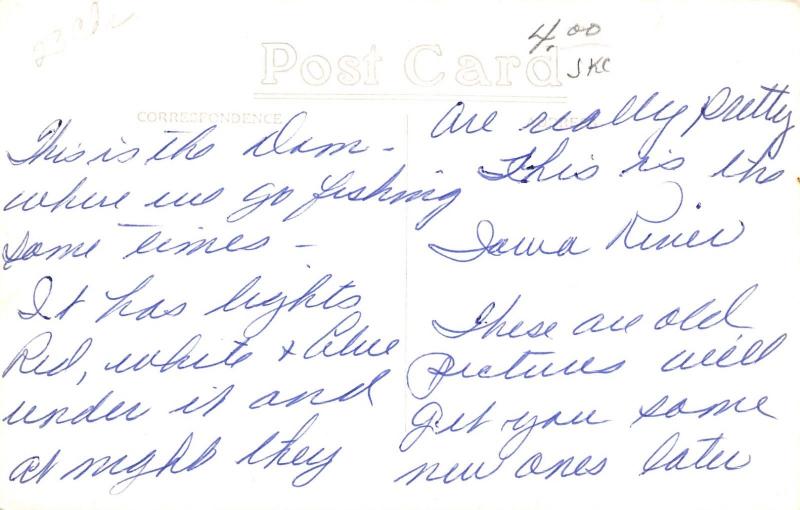 4.00
Post Card
SKC
CORRESPONDENCE
This is the Dam -
where we go fishing
some times -
It has lights
Red, white & blue
under it and
at night they
are really pretty
This is the
Iowa River
These are old
pictures will
get you some
new ones later